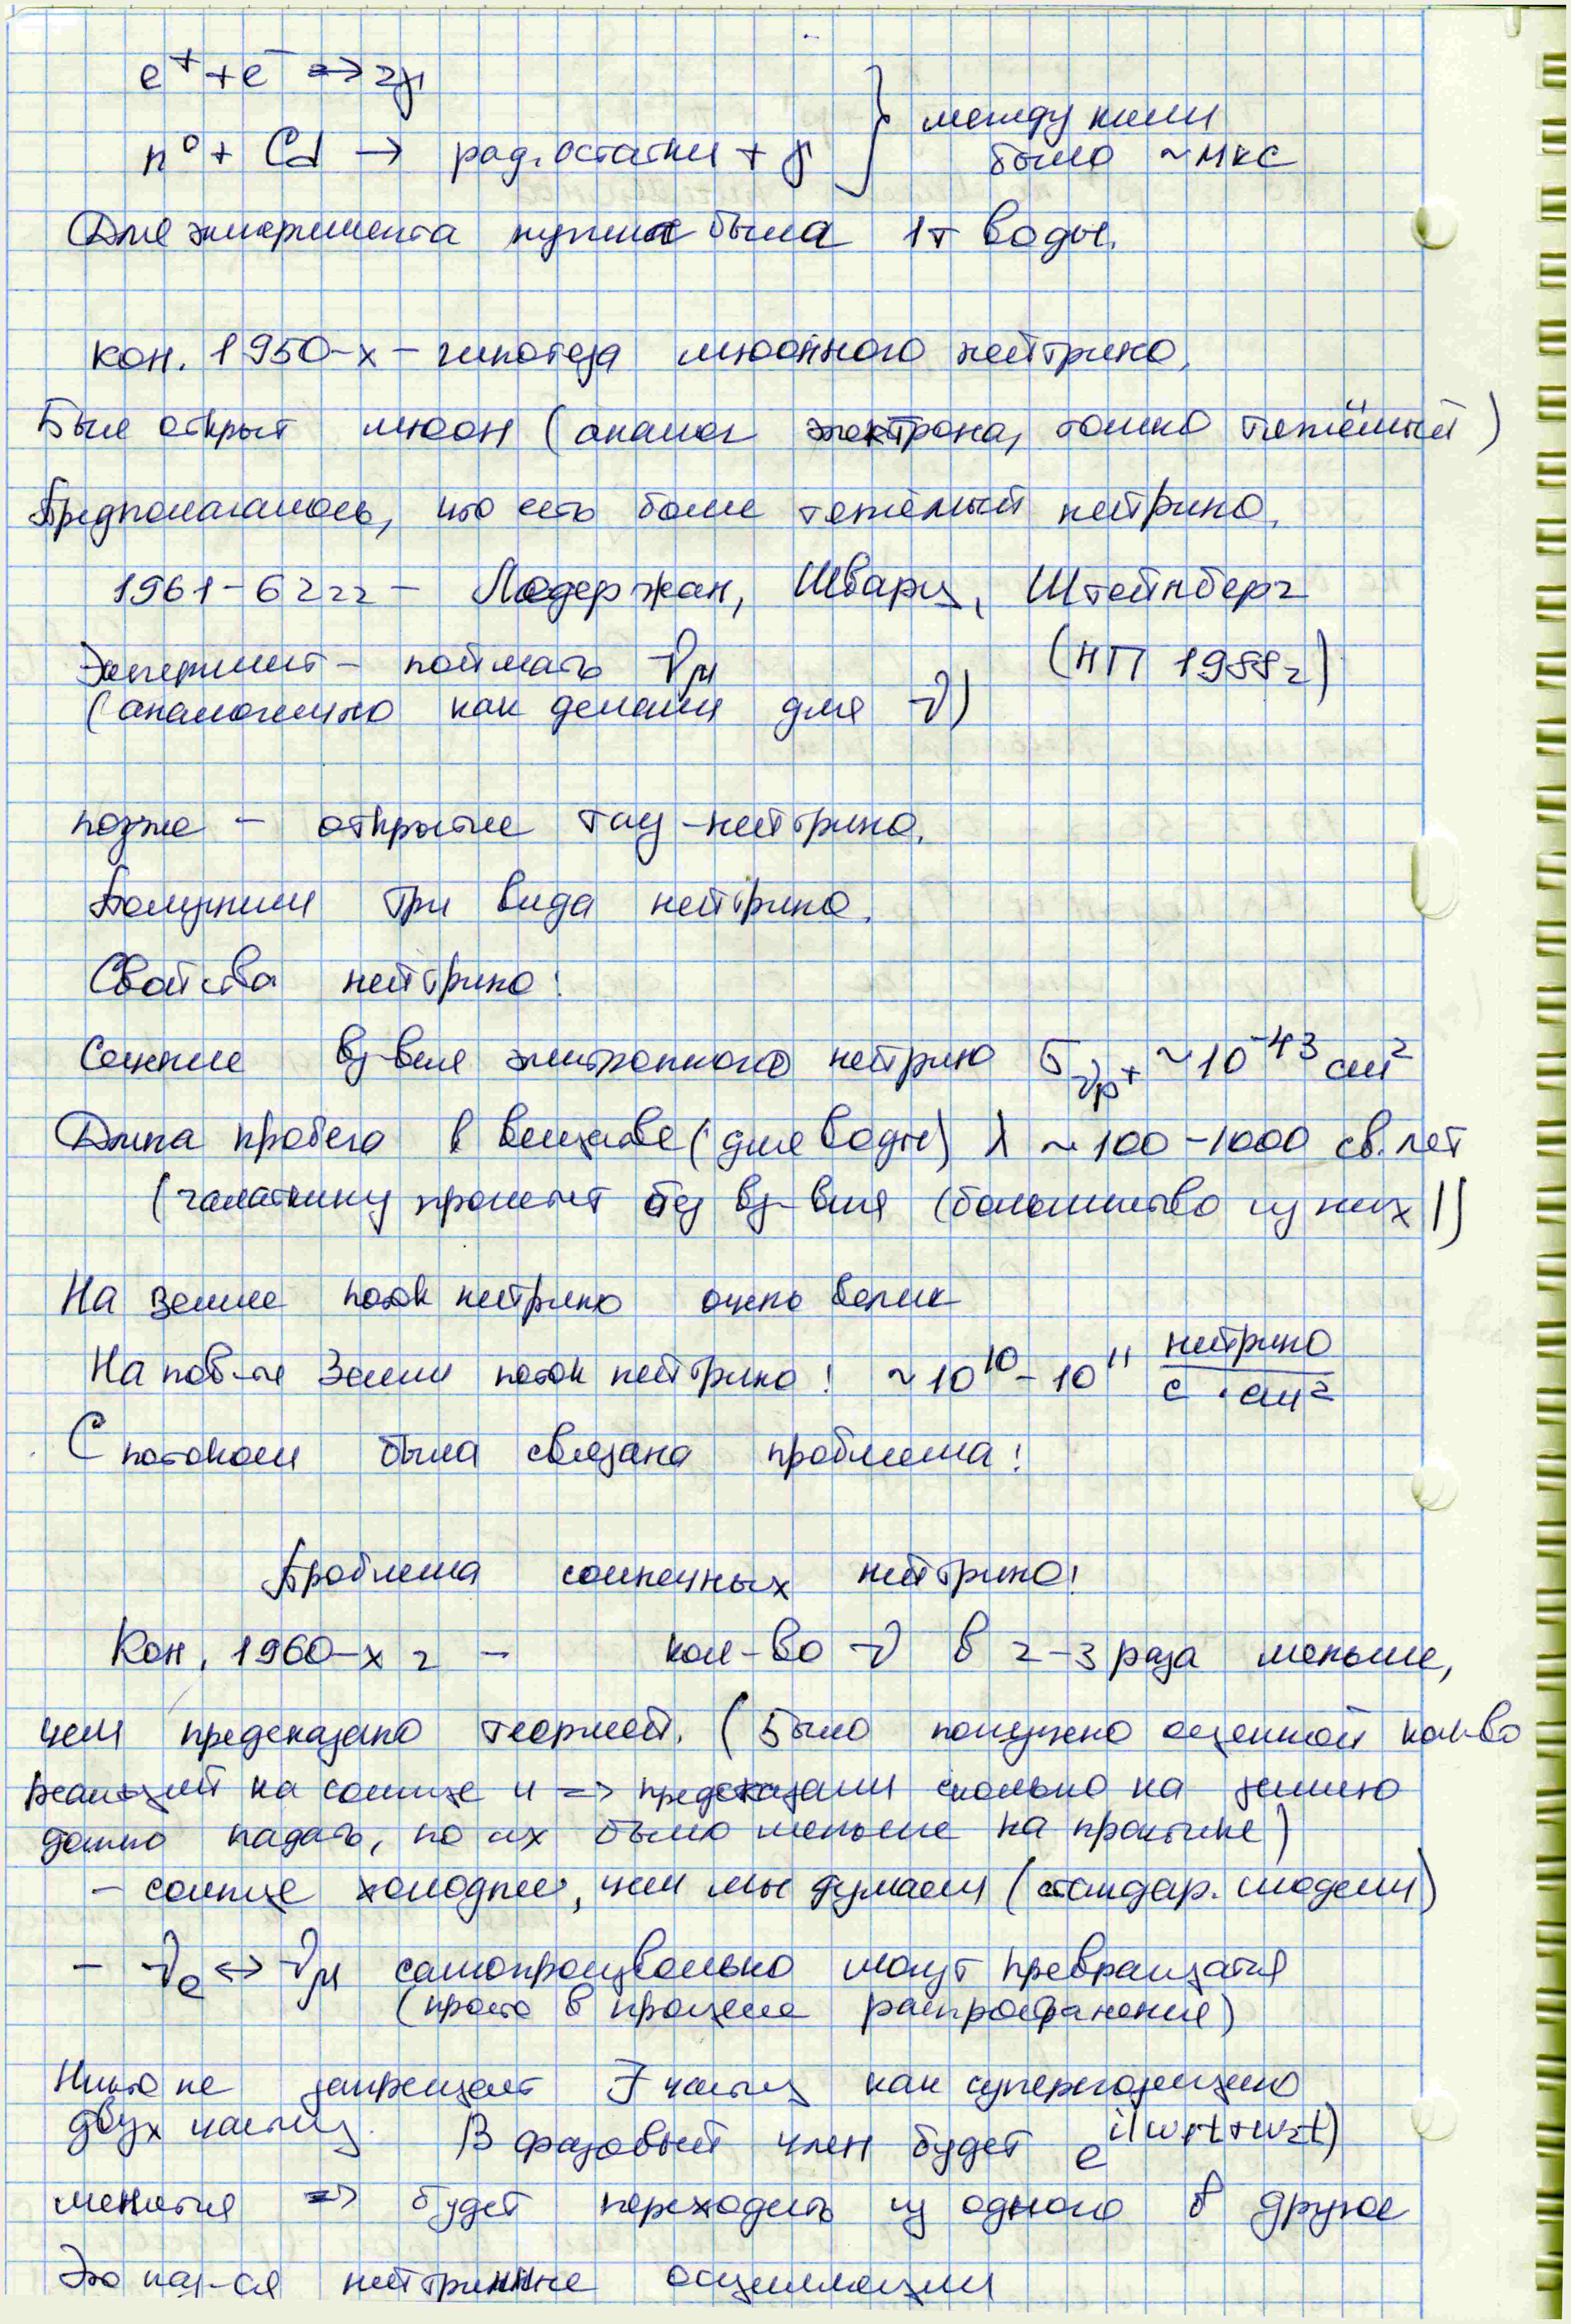 e⁺ + e⁻ => 2γ
n⁰ + Cd → рад. остатки + γ } между ними было ~ мкс
Для эксперимента нужна была 1т воды.
кон. 1950-х – гипотеза мюонного нейтрино.
Был открыт мюон (аналог электрона, только тяжёлый)
Предполагалось, что есть более тяжёлый нейтрино.
1961-62гг – Ледержан, Шварц, Штейнберг
Эксперимент – поймать ν_μ (НП 1988г)
(аналогично как делали для ν)
позже – открытие тау-нейтрино.
Получили три вида нейтрино.
Свойства нейтрино:
Сечение вз-вия электронного нейтрино σ_νp⁺ ~10⁻⁴³ см²
Длина пробега в веществе (для воды) λ ~ 100-1000 св. лет
(галактику пролетит без вз-вия (большинство из них))
На Земле поток нейтрино очень велик
На пов-ти Земли поток нейтрино: ~10¹⁰ - 10¹¹ нейтрино / с · см²
С потоком была связана проблема:
Проблема солнечных нейтрино:
Кон. 1960-х г – кол-во ν в 2-3 раза меньше,
чем предсказано теорией. (Было получено оценкой кол-во
реакций на солнце и => предсказали сколько на землю
должно падать, но их было меньше на практике)
– солнце холоднее, чем мы думаем (стандар. модели)
– ν_e ↔ ν_μ самопроизвольно могут превращатся
(просто в процессе распространения)
Никто не запрещает ∃ частиц как суперпозицию
двух частиц. В фазовый член будет e^i(ω₁t+ω₂t)
менятся => будет переходить из одного в другое
Это наз-ся нейтринные осцилляции